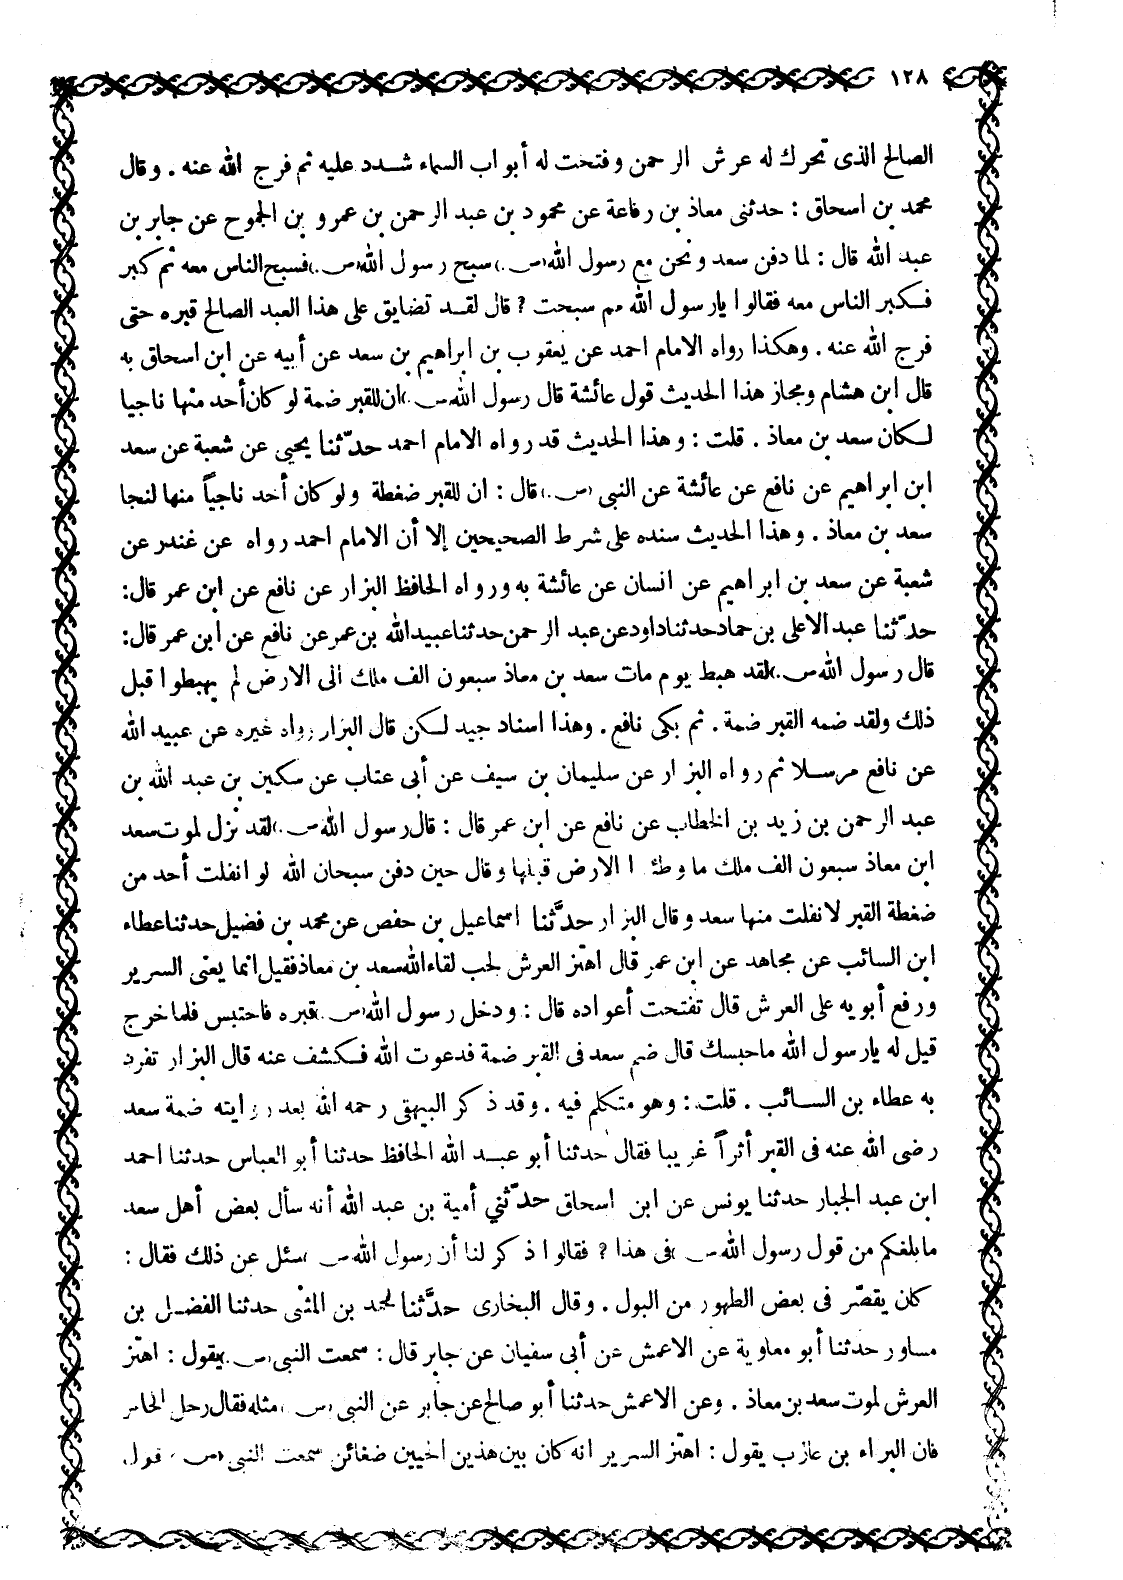 ١٢٨
الصالح الذى تحرك له عرش الرحمن وفتحت له أبواب السماء شدد عليه ثم فرج الله عنه . وقال
محمد بن اسحاق : حدثنى معاذ بن رفاعة عن محمود بن عبد الرحمن بن عمرو بن الجموح عن جابر بن
عبد الله قال : لما دفن سعد ونحن مع رسول الله (ص.) سبح رسول الله (ص.) فسبح الناس معه ثم كبر
فكبر الناس معه فقالوا يارسول الله مم سبحت ؟ قال لقد تضايق على هذا العبد الصالح قبره حتى
فرج الله عنه . وهكذا رواه الامام احمد عن يعقوب بن ابراهيم بن سعد عن أبيه عن ابن اسحاق به
قال ابن هشام ومجاز هذا الحديث قول عائشة قال رسول الله ص.) ان للقبر ضمة لو كان أحد منها ناجيا
لكان سعد بن معاذ . قلت : وهذا الحديث قد رواه الامام احمد حدّثنا يحيى عن شعبة عن سعد
ابن ابراهيم عن نافع عن عائشة عن النبى (ص.) قال : ان للقبر ضغطة ولو كان أحد ناجياً منها لنجا
سعد بن معاذ . وهذا الحديث سنده على شرط الصحيحين إلا أن الامام احمد رواه عن غندر عن
شعبة عن سعد بن ابراهيم عن انسان عن عائشة به ورواه الحافظ البزار عن نافع عن ابن عمر قال :
حدّثنا عبد الاعلى بن حماد حدثنا داود عن عبد الرحمن حدثنا عبيد الله بن عمر عن نافع عن ابن عمر قال :
قال رسول الله ص.) لقد هبط يوم مات سعد بن معاذ سبعون الف ملك الى الارض لم يهبطوا قبل
ذلك ولقد ضمه القبر ضمة . ثم بكى نافع . وهذا اسناد جيد لكن قال البزار رواه غيره عن عبيد الله
عن نافع مرسلا ثم رواه البزار عن سليمان بن سيف عن أبى عتاب عن سكين بن عبد الله بن
عبد الرحمن بن زيد بن الخطاب عن نافع عن ابن عمر قال : قال رسول الله ص.) لقد نزل لموت سعد
ابن معاذ سبعون الف ملك ما وطئوا الارض قبلها وقال حين دفن سبحان الله لو انفلت أحد من
ضغطة القبر لانفلت منها سعد وقال البزار حدَّثنا اسماعيل بن حفص عن محمد بن فضيل حدثنا عطاء
ابن السائب عن مجاهد عن ابن عمر قال اهتز العرش لحب لقاء الله سعد بن معاذ فقيل انما يعنى السرير
ورفع أبويه على العرش قال تفتحت أعواده قال : ودخل رسول الله (ص.) قبره فاحتبس فلما خرج
قيل له يارسول الله ماحبسك قال ضم سعد فى القبر ضمة فدعوت الله فكشف عنه قال البزار تفرد
به عطاء بن السائب . قلت : وهو متكلم فيه . وقد ذكر البيهقى رحمه الله بعد روايته ضمة سعد
رضى الله عنه فى القبر أثراً غريبا فقال حدثنا أبو عبد الله الحافظ حدثنا أبو العباس حدثنا احمد
ابن عبد الجبار حدثنا يونس عن ابن اسحاق حدّثني أمية بن عبد الله أنه سأل بعض أهل سعد
مابلغكم من قول رسول الله ص ) فى هذا ؟ فقالوا ذكر لنا أن رسول الله ص ) سئل عن ذلك فقال :
كان يقصّر فى بعض الطهور من البول . وقال البخارى حدَّثنا محمد بن المثنى حدثنا الفضل بن
مساور حدثنا أبو معاوية عن الاعمش عن أبى سفيان عن جابر قال : سمعت النبى (ص.) يقول : اهتز
العرش لموت سعد بن معاذ . وعن الاعمش حدثنا أبو صالح عن جابر عن النبى (ص ) مثله فقال رجل لجابر
فان البراء بن عازب يقول : اهتز السرير انه كان بين هذين الحيين ضغائن سمعت النبى (ص ) يقول